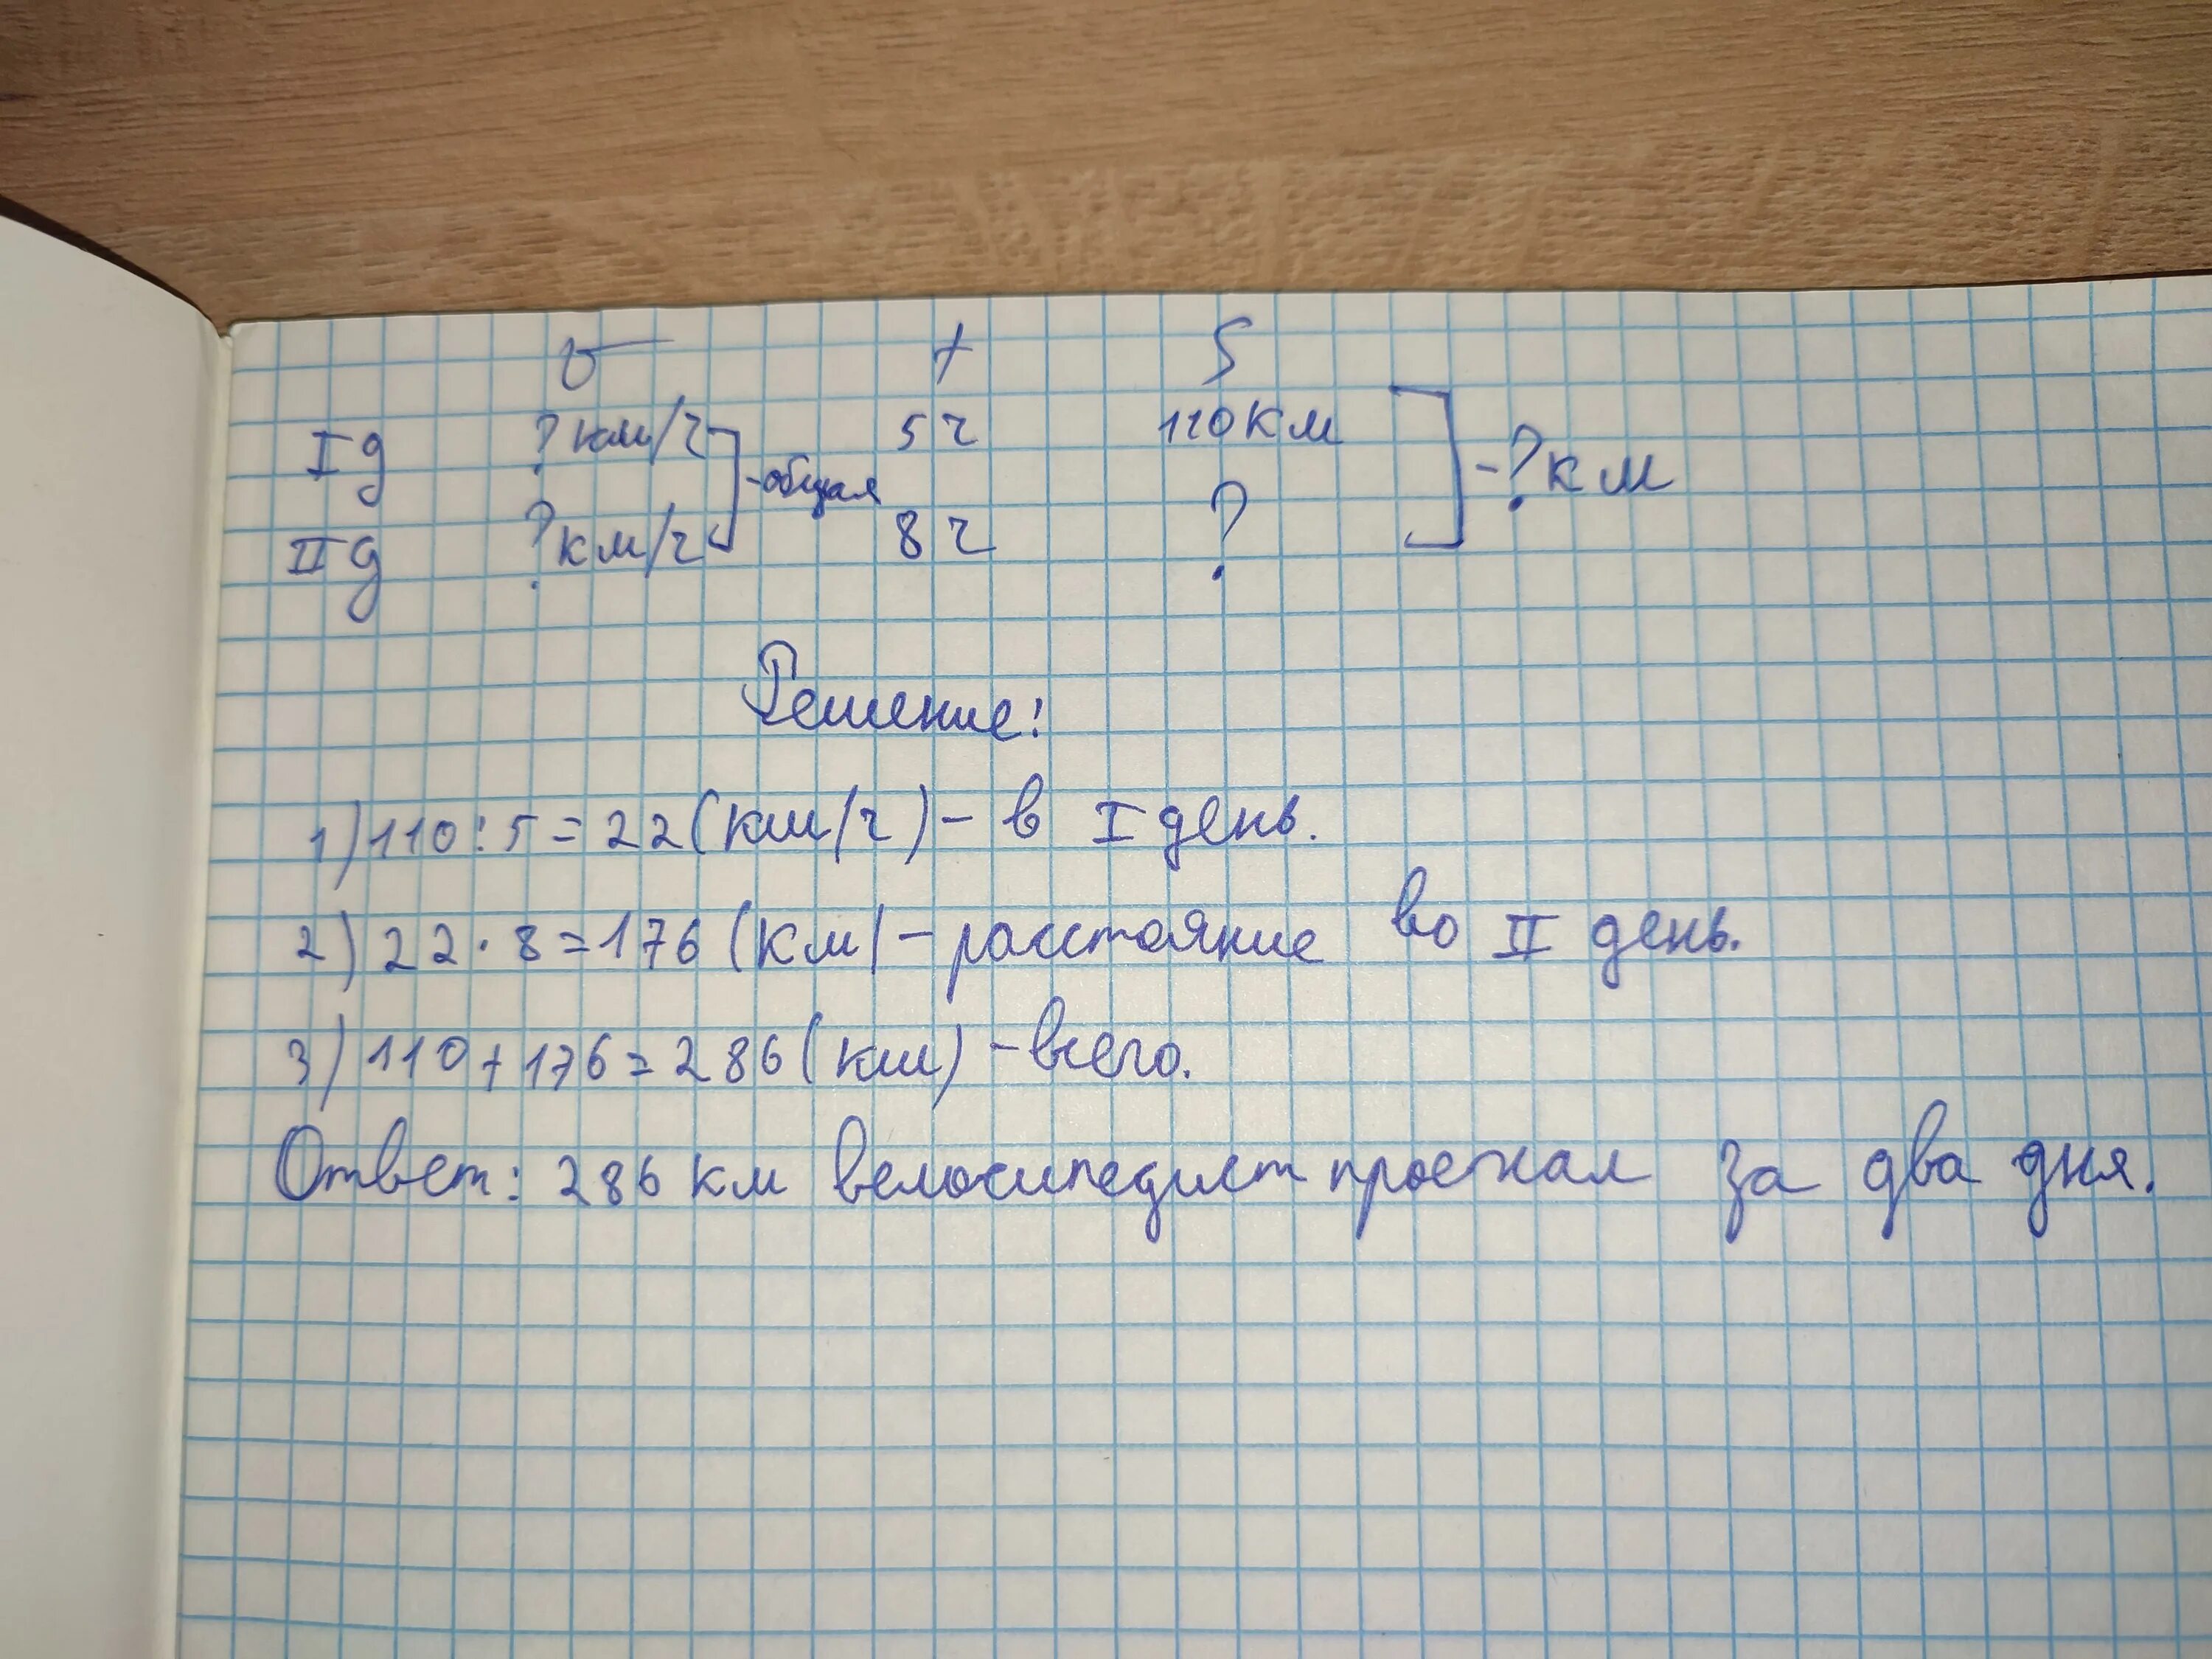 v t S
I д ? км/ч 5 ч 110 км
- общая - ? км
II д ? км/ч 8 ч ?
Решение:
1) 110 : 5 = 22 (км/ч) - в I день.
2) 22 · 8 = 176 (км) - расстояние во II день.
3) 110 + 176 = 286 (км) - всего.
Ответ: 286 км велосипедист проехал за два дня.